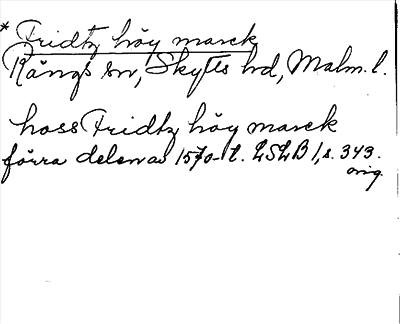 * Fridtz höy marck
Rängs sn, Skytts hd, Malm. l.
hoss Fridtz höy marck
förra delen av 1570-t. LSLB 1, s. 343.
orig.